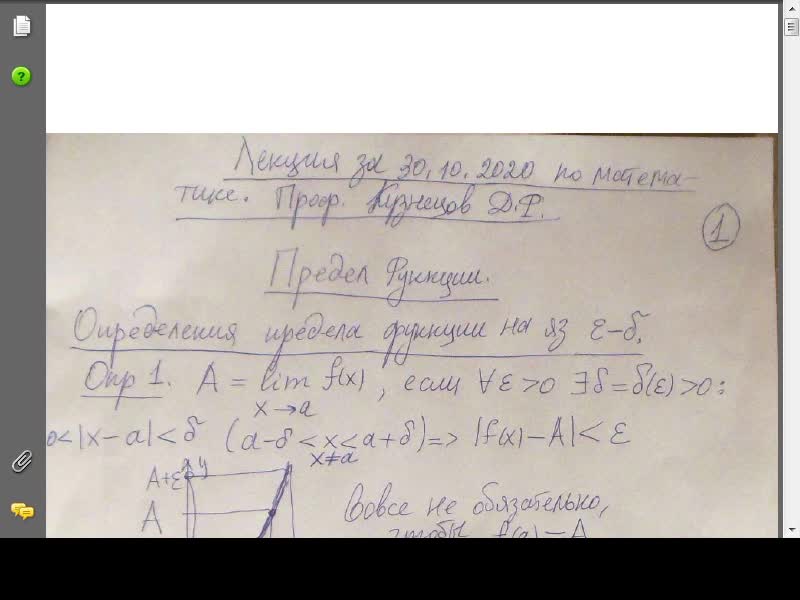 Лекция за 30.10.2020 по матема-
тике. Проф. Кузнецов Д.Ф.
1
Предел функции.
Определения предела функции на яз ε-δ.
Опр 1. A = lim f(x), если ∀ε>0 ∃δ=δ(ε)>0:
x→a
0<|x-a|<δ (a-δ<x<a+δ)=> |f(x)-A|<ε
x≠a
A+ε y
A
Вовсе не обязательно,
чтобы f(a)=A